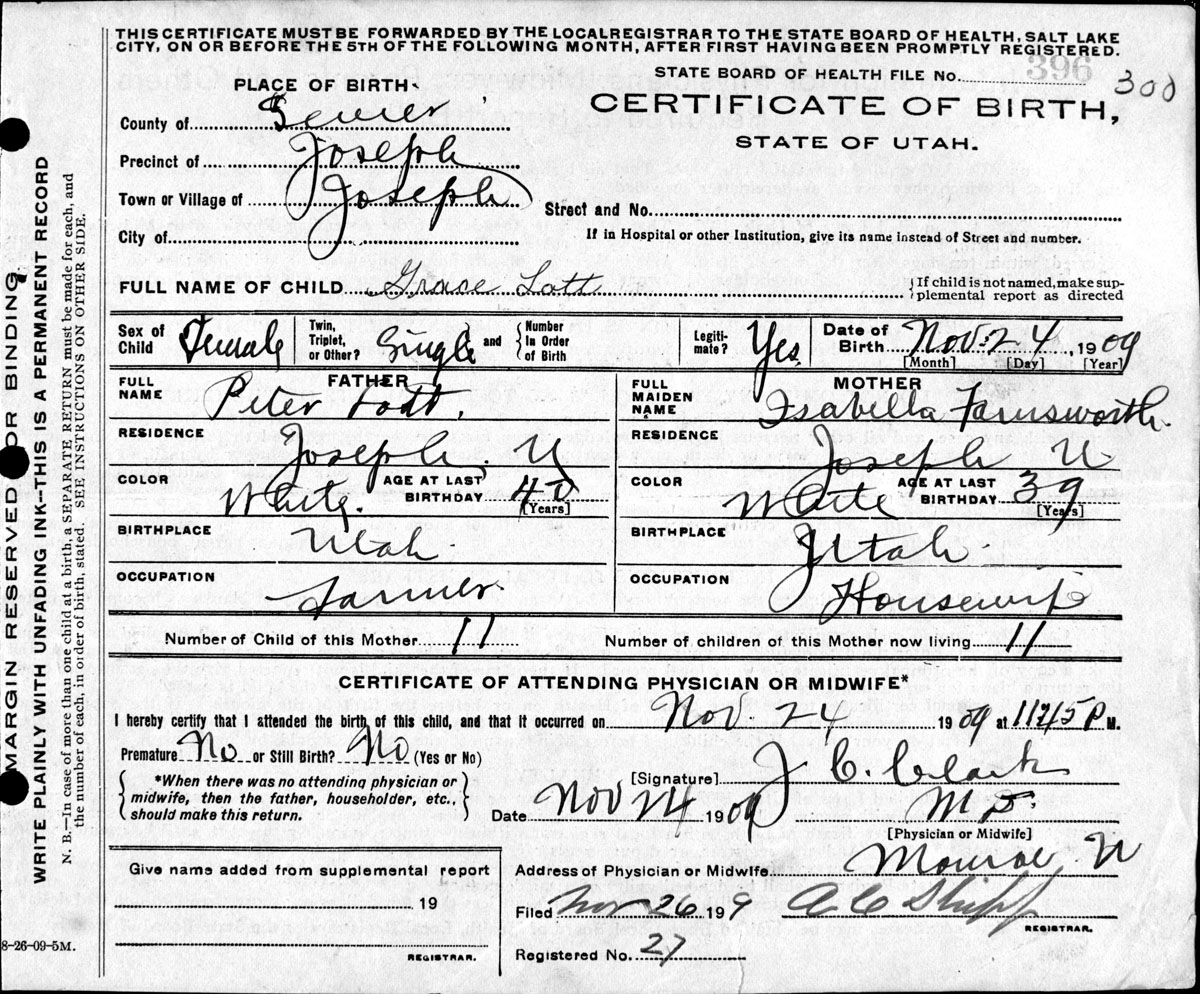 THIS CERTIFICATE MUST BE FORWARDED BY THE LOCALREGISTRAR TO THE STATE BOARD OF HEALTH, SALT LAKE
CITY, ON OR BEFORE THE 5TH OF THE FOLLOWING MONTH, AFTER FIRST HAVING BEEN PROMPTLY REGISTERED.
STATE BOARD OF HEALTH FILE No. 396 300
PLACE OF BIRTH
CERTIFICATE OF BIRTH,
STATE OF UTAH.
County of Sevier
Precinct of Joseph
Town or Village of Joseph
Street and No.
City of
If in Hospital or other Institution, give its name instead of Street and number.
FULL NAME OF CHILD Grace Lott {If child is not named, make sup-
plemental report as directed
Sex of Child Female Twin, Triplet, or Other? Single and {Number In Order of Birth Legiti-mate? Yes Date of Birth Nov. 24, 1909
[Month] [Day] [Year]
FATHER
FULL NAME Peter Lott.
RESIDENCE Joseph. U
COLOR White. AGE AT LAST BIRTHDAY 40 [Years]
BIRTHPLACE Utah
OCCUPATION Farmer.
MOTHER
FULL MAIDEN NAME Isabella Farnsworth.
RESIDENCE Joseph U
COLOR White AGE AT LAST BIRTHDAY 39 [Years]
BIRTHPLACE Utah.
OCCUPATION Housewife
Number of Child of this Mother 11 Number of children of this Mother now living 11
CERTIFICATE OF ATTENDING PHYSICIAN OR MIDWIFE*
I hereby certify that I attended the birth of this child, and that it occurred on Nov. 24 1909 at 1145 P M.
Premature No or Still Birth? No (Yes or No)
{*When there was no attending physician or
midwife, then the father, householder, etc.,
should make this return.}
[Signature] J C. Clark
Date Nov 24 1909 M D.
[Physician or Midwife]
Address of Physician or Midwife Monroe U
Give name added from supplemental report
19
REGISTRAR.
Filed Nov 26 199 A C Shipp
REGISTRAR.
Registered No. 27
8-26-09-5M.
MARGIN RESERVED FOR BINDING
WRITE PLAINLY WITH UNFADING INK--THIS IS A PERMANENT RECORD
N. B.—In case of more than one child at a birth, a SEPARATE RETURN must be made for each, and
the number of each, in order of birth, stated. SEE INSTRUCTIONS ON OTHER SIDE.